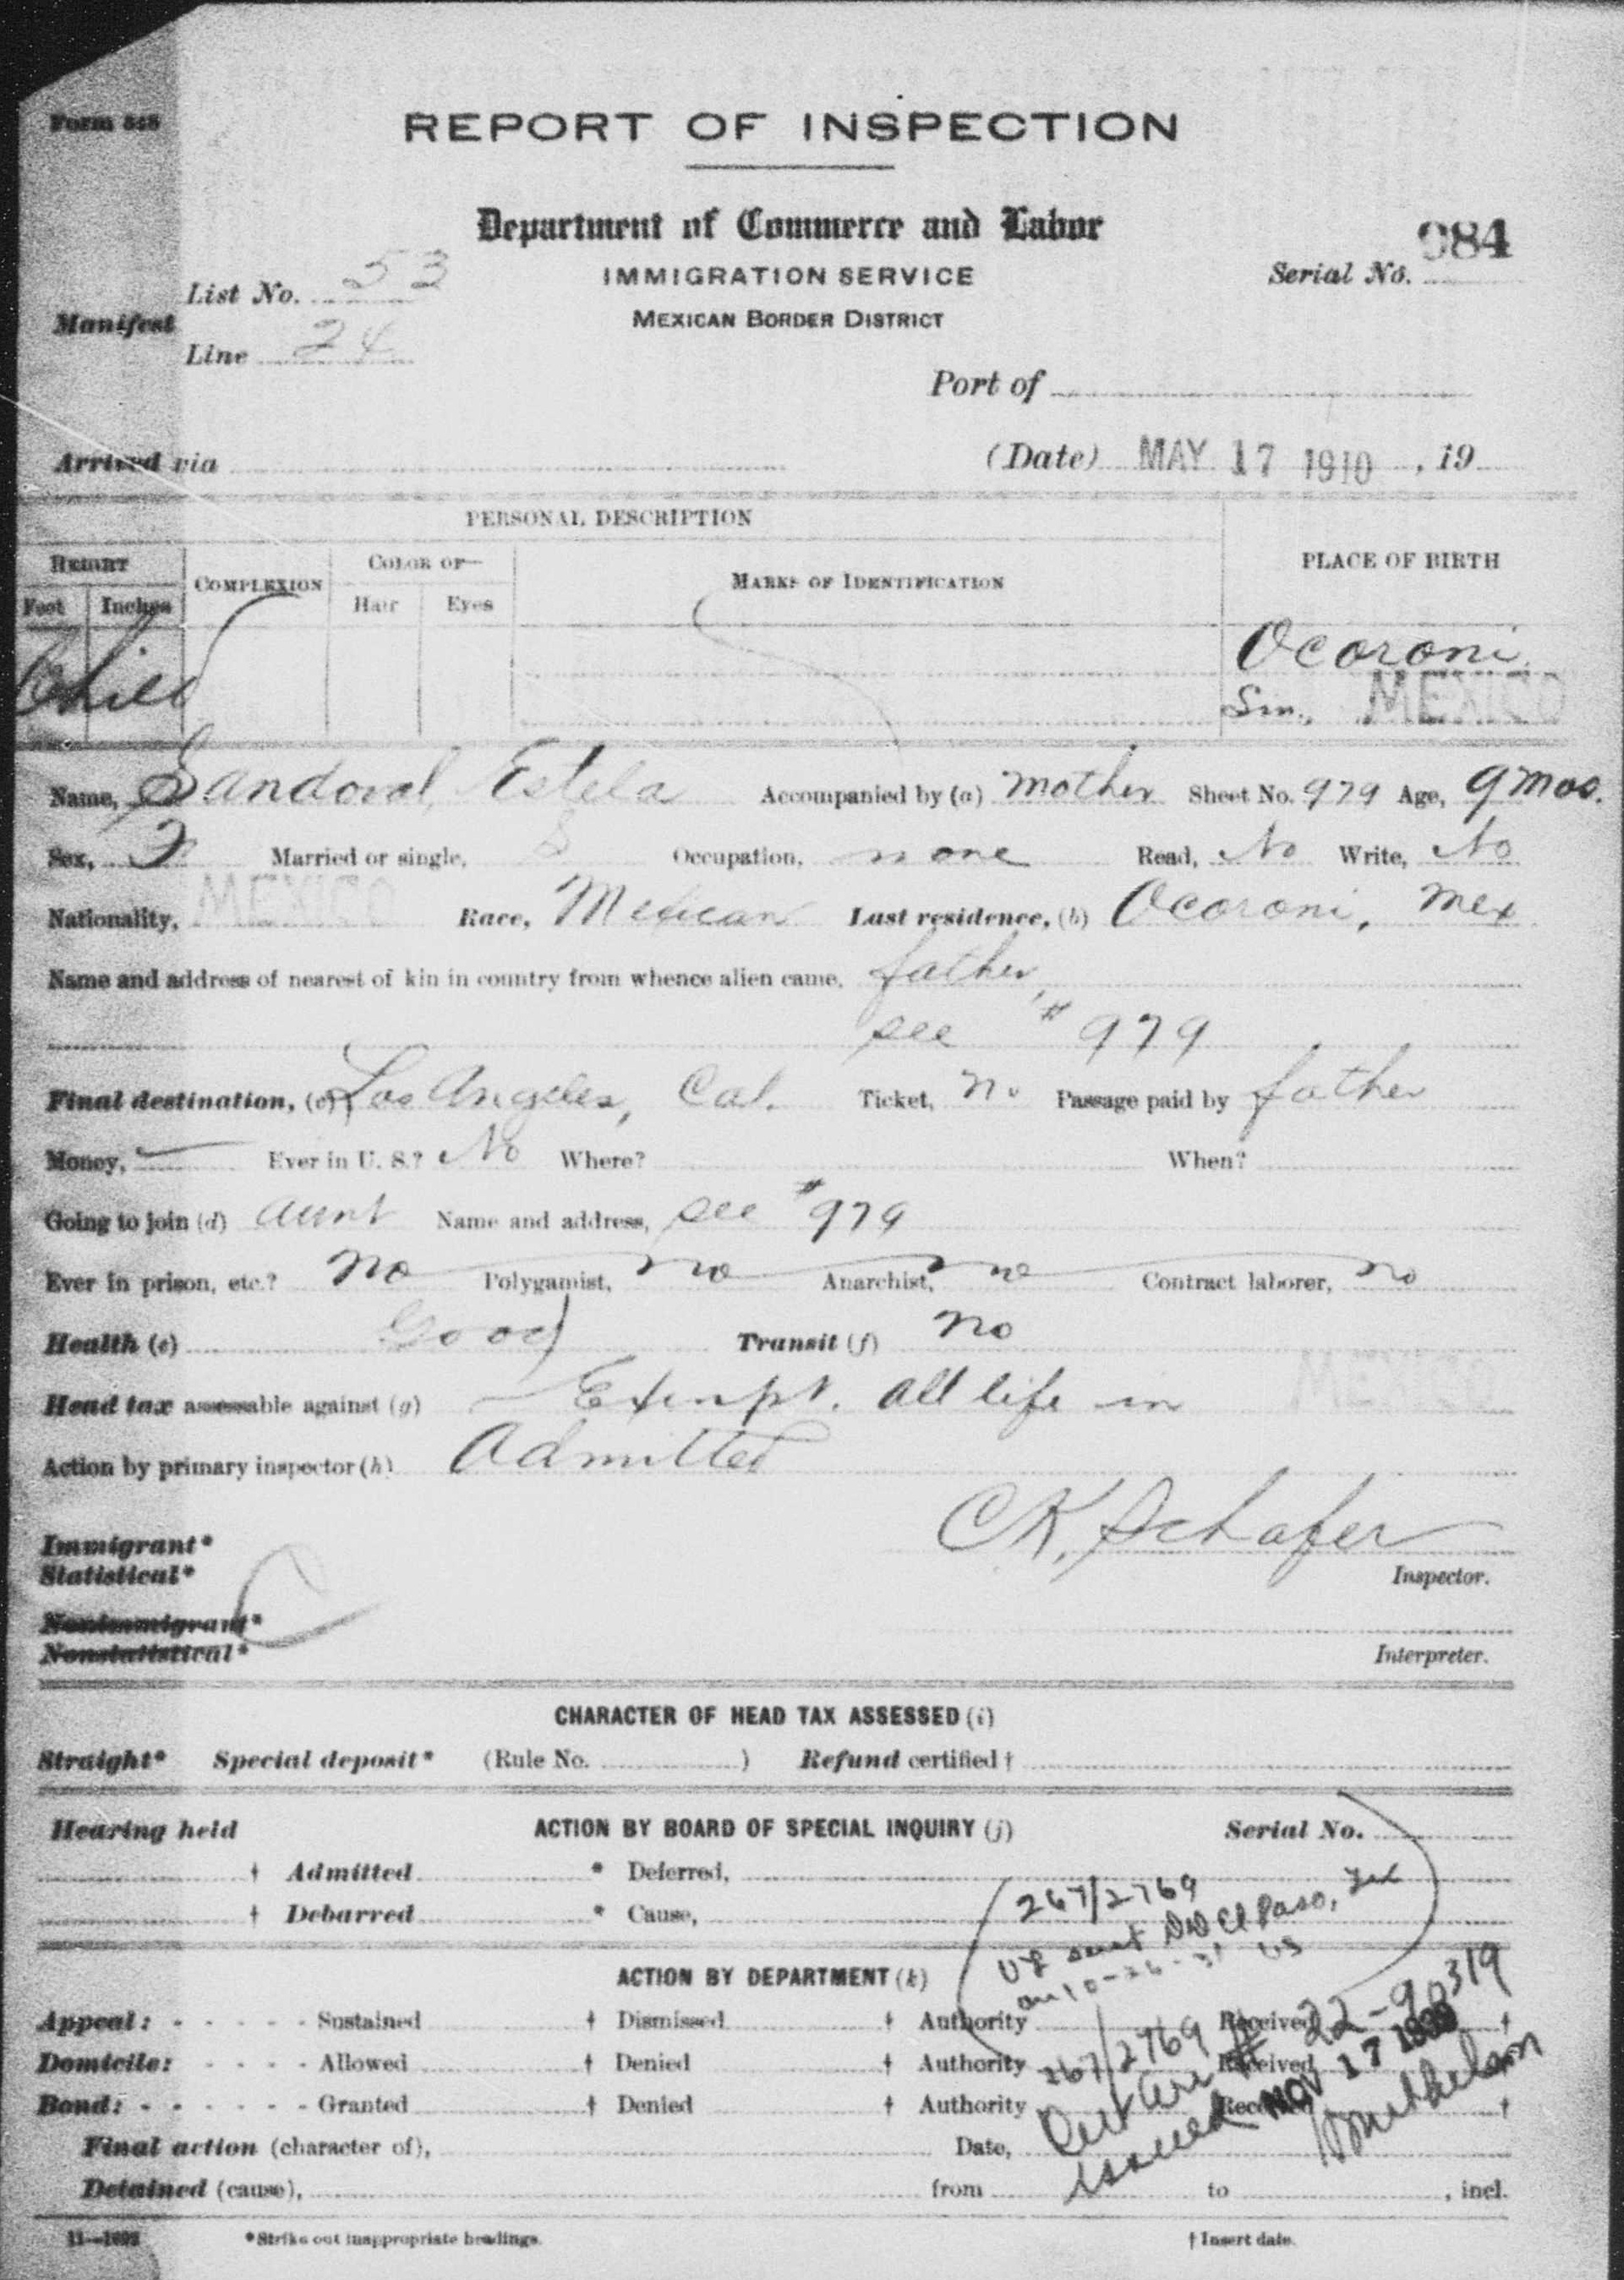 Form 548
REPORT OF INSPECTION
Department of Commerce and Labor
984
IMMIGRATION SERVICE
Serial No.
List No. 53
Manifest
MEXICAN BORDER DISTRICT
Line 24
Port of
Arrived via
(Date) MAY 17 1910, 19
PERSONAL DESCRIPTION
HEIGHT COMPLEXION COLOR OF— MARKS OF IDENTIFICATION PLACE OF BIRTH
Feet Inches Hair Eyes
Child Ocoroni
Sin., MEXICO
Name, Sandoval, Estela Accompanied by (a) mother Sheet No. 979 Age, 9 mos.
Sex, F Married or single, S Occupation, none Read, No Write, No
Nationality, MEXICO Race, Mexican Last residence, (b) Ocoroni, Mex
Name and address of nearest of kin in country from whence alien came, father,
see # 979
Final destination, (c) Los Angeles, Cal. Ticket, no Passage paid by father
Money, — Ever in U. S.? No Where? When?
Going to join (d) aunt Name and address, see # 979
Ever in prison, etc.? no Polygamist, no Anarchist, no Contract laborer, no
Health (e) Good Transit (f) no
Head tax assessable against (g) Exempt. all life in MEXICO
Action by primary inspector (h) Admitted
C K. Schafer
Immigrant*
Statistical* Inspector.
Nonimmigrant*
Nonstatistical* Interpreter.
CHARACTER OF HEAD TAX ASSESSED (i)
Straight* Special deposit* (Rule No. ) Refund certified †
Hearing held ACTION BY BOARD OF SPECIAL INQUIRY (j) Serial No.
† Admitted * Deferred,
† Debarred * Cause,
267/2769
sent El Paso, Tex
on 10-26-31
ACTION BY DEPARTMENT (k)
Appeal: - - - - - Sustained † Dismissed † Authority Received †
Domicile: - - - - Allowed † Denied † Authority Received †
Bond: - - - - - - Granted † Denied † Authority Received †
267/2769
# 22-90319
Issued NOV 17
Final action (character of), Date,
Detained (cause), from to , incl.
*Strike out inappropriate headings. † Insert date.